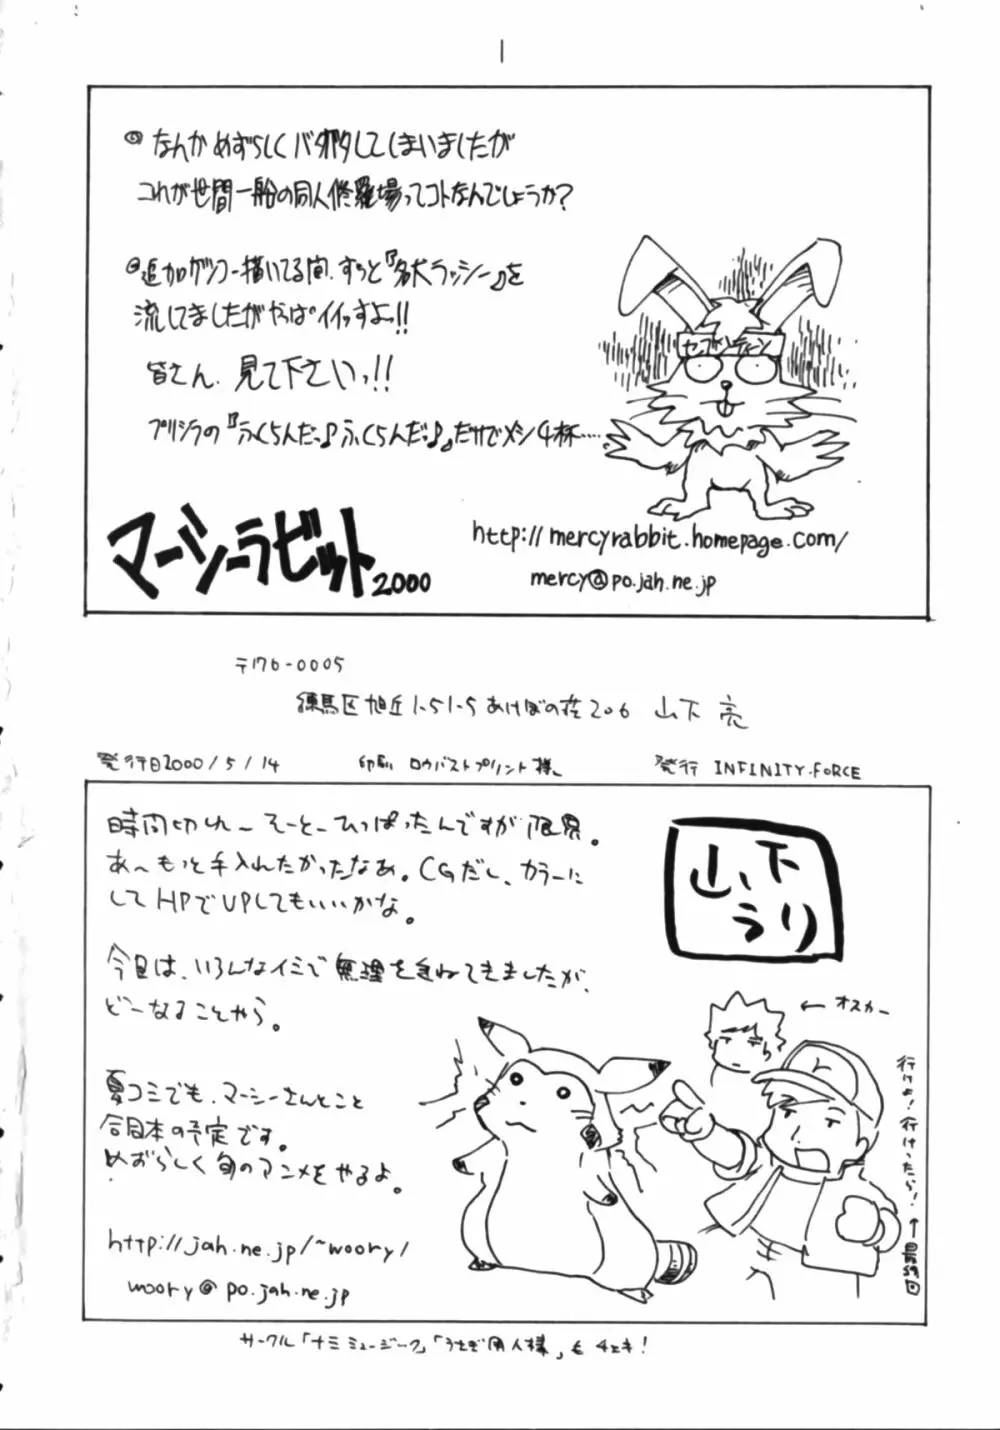 ◎なんか めずらしく バタバタしてしまいましたが
これが世間一般の同人修羅場ってコトなんでしょうか?
◎追加ゲンコー描いてる間、ずっと『名犬ラッシー』を
流してましたがやっぱイイっすよッ!!
皆さん、見て下さいっ!!
プリシラの『ふくらんだっ♪ふくらんだっ♪』だけでメシ4杯‥‥
セブンティーン
マーシーラビット2000
http://mercyrabbit.homepage.com/
mercy@po.jah.ne.jp
〒176-0005
練馬区旭丘1-51-5 あけぼの荘206 山下 亮
発行日2000/5/14 印刷 ロウバストプリント様 発行 INFINITY-FORCE
時間切れ〜 そーとーひっぱったんですが限界。
あ〜もっと手入れたかったなあ。CGだし、カラーに
してHPでUPしてもいいかな。
山下
うり
今回は、いろんなイミで無理を重ねてきましたが、
どーなることやら。
←オスカー
行けよ!行けったら!
↑最終回
夏コミでも、マーシーさんとこと
合同本の予定です。
めずらしく旬のアニメをやるよ。
http://jah.ne.jp/~woory/
woory@po.jah.ne.jp
サークル「ナミミュージーク」「うさぎ同人様」も